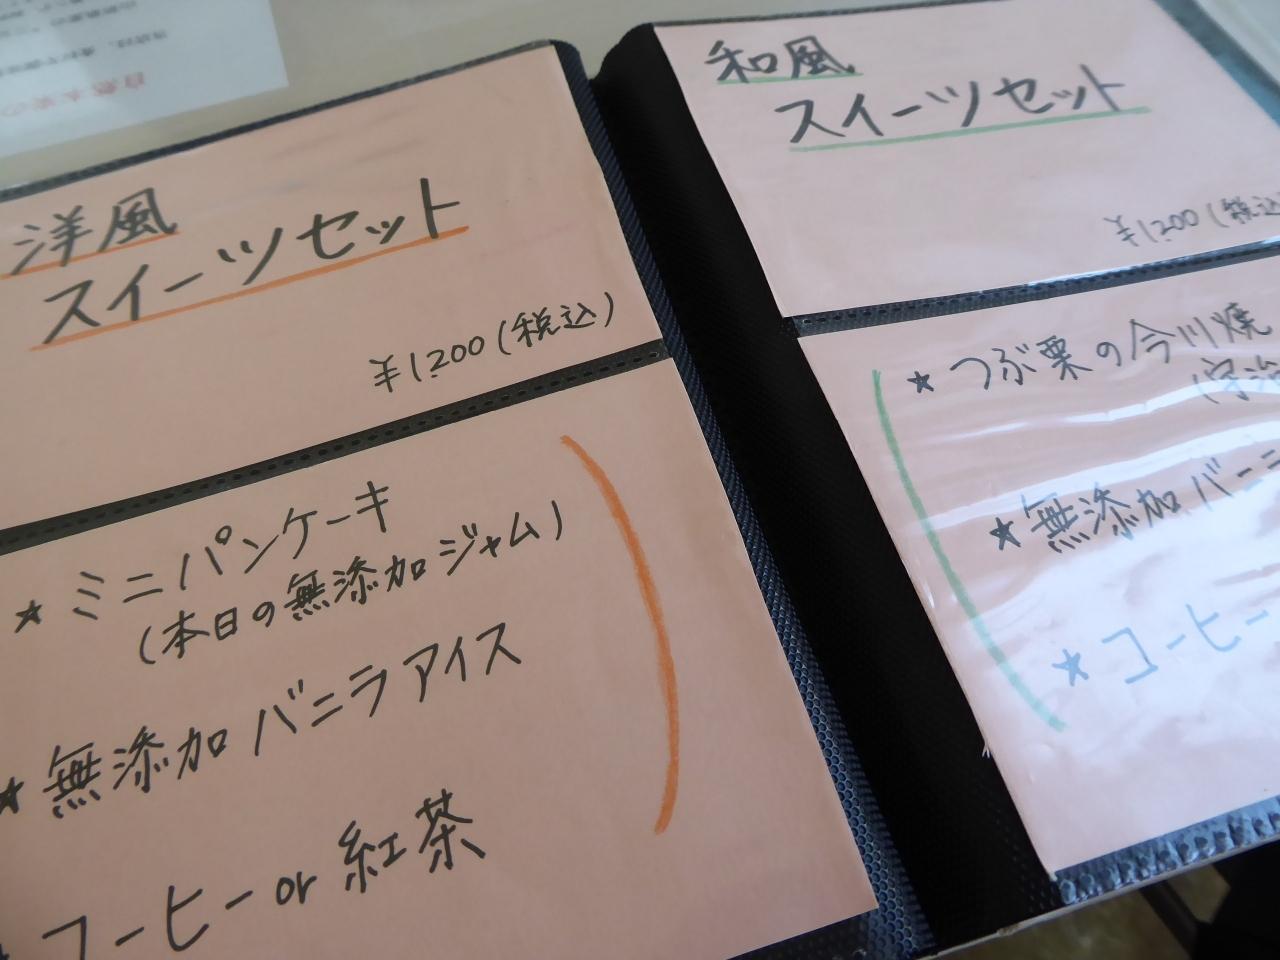 洋風
スイーツセット
¥1200(税込)
★ミニパンケーキ
(本日の無添加ジャム)
★無添加バニラアイス
コーヒーor紅茶
和風
スイーツセット
¥1200(税込
★つぶ栗の今川焼
(宇治
★無添加バニ
★コーヒー